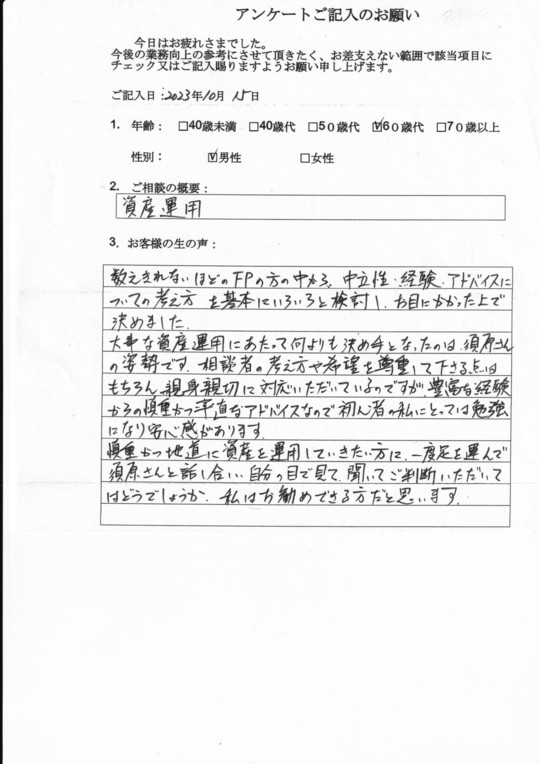 アンケートご記入のお願い
今日はお疲れさまでした。
今後の業務向上の参考にさせて頂きたく、お差支えない範囲で該当項目に
チェック又はご記入賜りますようお願い申し上げます。
ご記入日：2023年10月15日
1. 年齢： □40歳未満 □40歳代 □50歳代 ☑60歳代 □70歳以上
性別： ☑男性 □女性
2. ご相談の概要：
資産運用
3. お客様の生の声：
数えきれないほどのFPの方の中から、中立性・経験・アドバイスに
ついての考え方を基本にいろいろと検討し、お目にかかった上で
決めました。
大事な資産運用にあたって何よりも決め手となったのは、須原さん
の姿勢です。相談者の考え方や希望を尊重して下さる点は
もちろん、親身親切に対応いただいているのですが、豊富な経験
からの慎重かつ率直なアドバイスなので初心者の私にとっては勉強
になり安心感があります。
慎重かつ地道に資産を運用していきたい方に、一度足を運んで
須原さんと話し合い、自分の目で見て、聞いてご判断いただいて
はどうでしょうか。私はお勧めできる方だと思います。